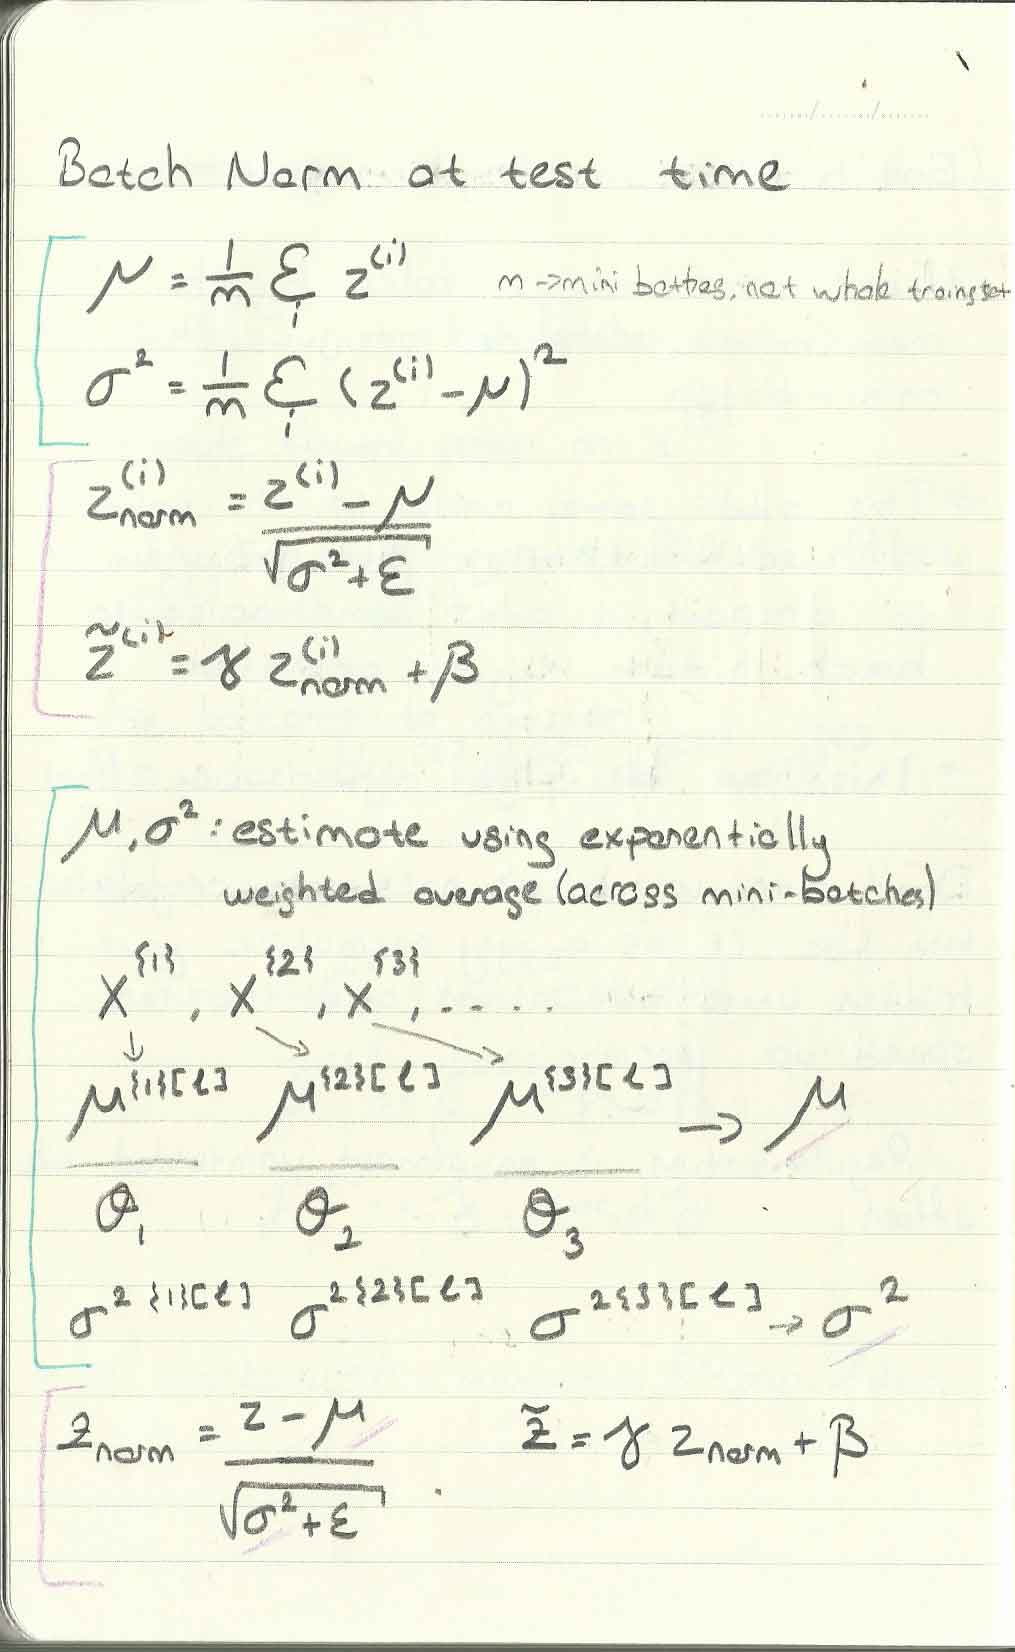 Batch Norm at test time
μ = 1/m Σ_i z^(i) m → mini batches, not whole traing set
σ² = 1/m Σ_i (z^(i) - μ)²
z_norm^(i) = (z^(i) - μ) / √(σ² + ε)
z̃^(i) = γ z_norm^(i) + β
μ, σ² : estimate using exponentially
weighted average (across mini-batches)
X^{1}, X^{2}, X^{3}, .....
μ^{1}[l] μ^{2}[l] μ^{3}[l] → μ
θ₁ θ₂ θ₃
σ²^{1}[l] σ²^{2}[l] σ²^{3}[l] → σ²
z_norm = (z - μ) / √(σ² + ε) z̃ = γ z_norm + β